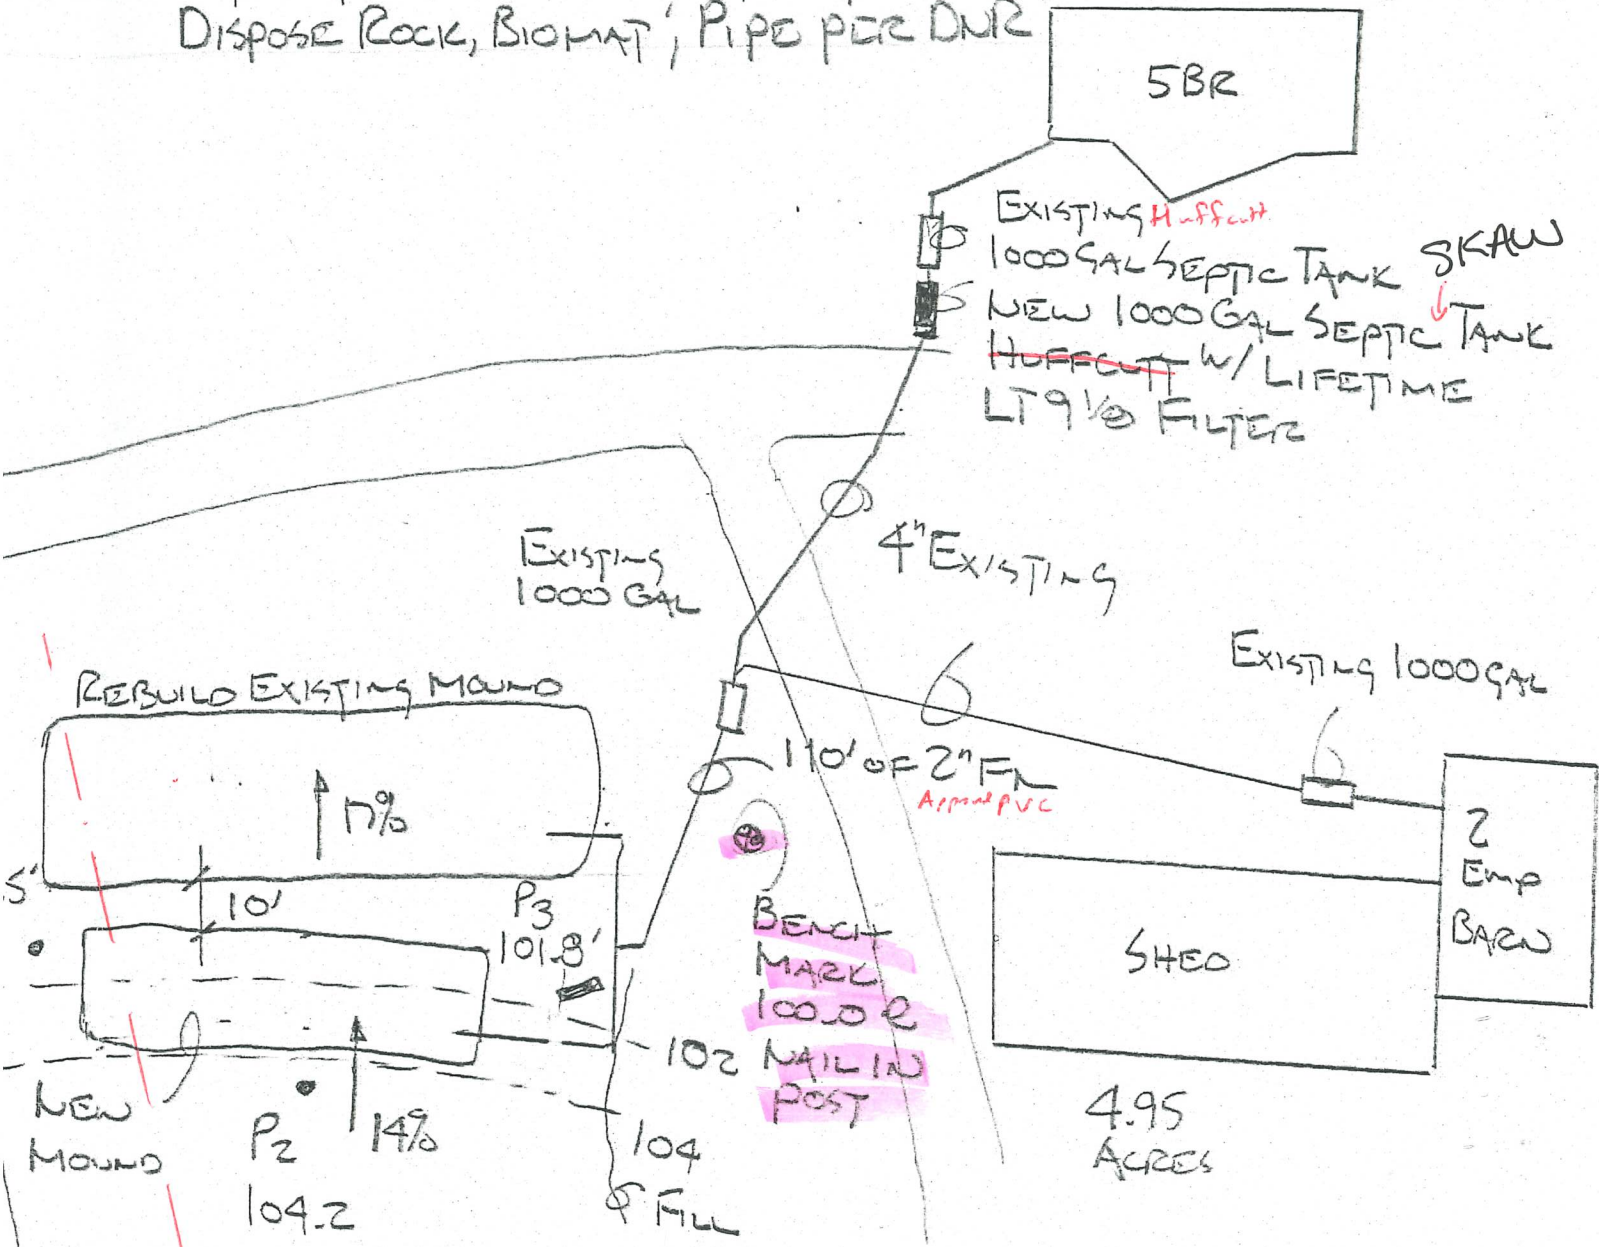 DISPOSE ROCK, BIOMAT, PIPE PER DNR
5BR
EXISTING Huffcutt
1000 GAL SEPTIC TANK
SKAW
NEW 1000 GAL SEPTIC TANK
HUFFCUTT W/ LIFETIME
LT 9 1/8 FILTER
4" EXISTING
EXISTING
1000 GAL
EXISTING 1000 GAL
REBUILD EXISTING MOUND
110' OF 2" FM
PVC
17%
2
EMP
BARN
5'
10'
P3
101.8'
BENCH
MARK
100.0 @
NAIL IN
POST
SHED
102
NEW
MOUND
P2
104.2
14%
104
FILL
4.95
ACRES